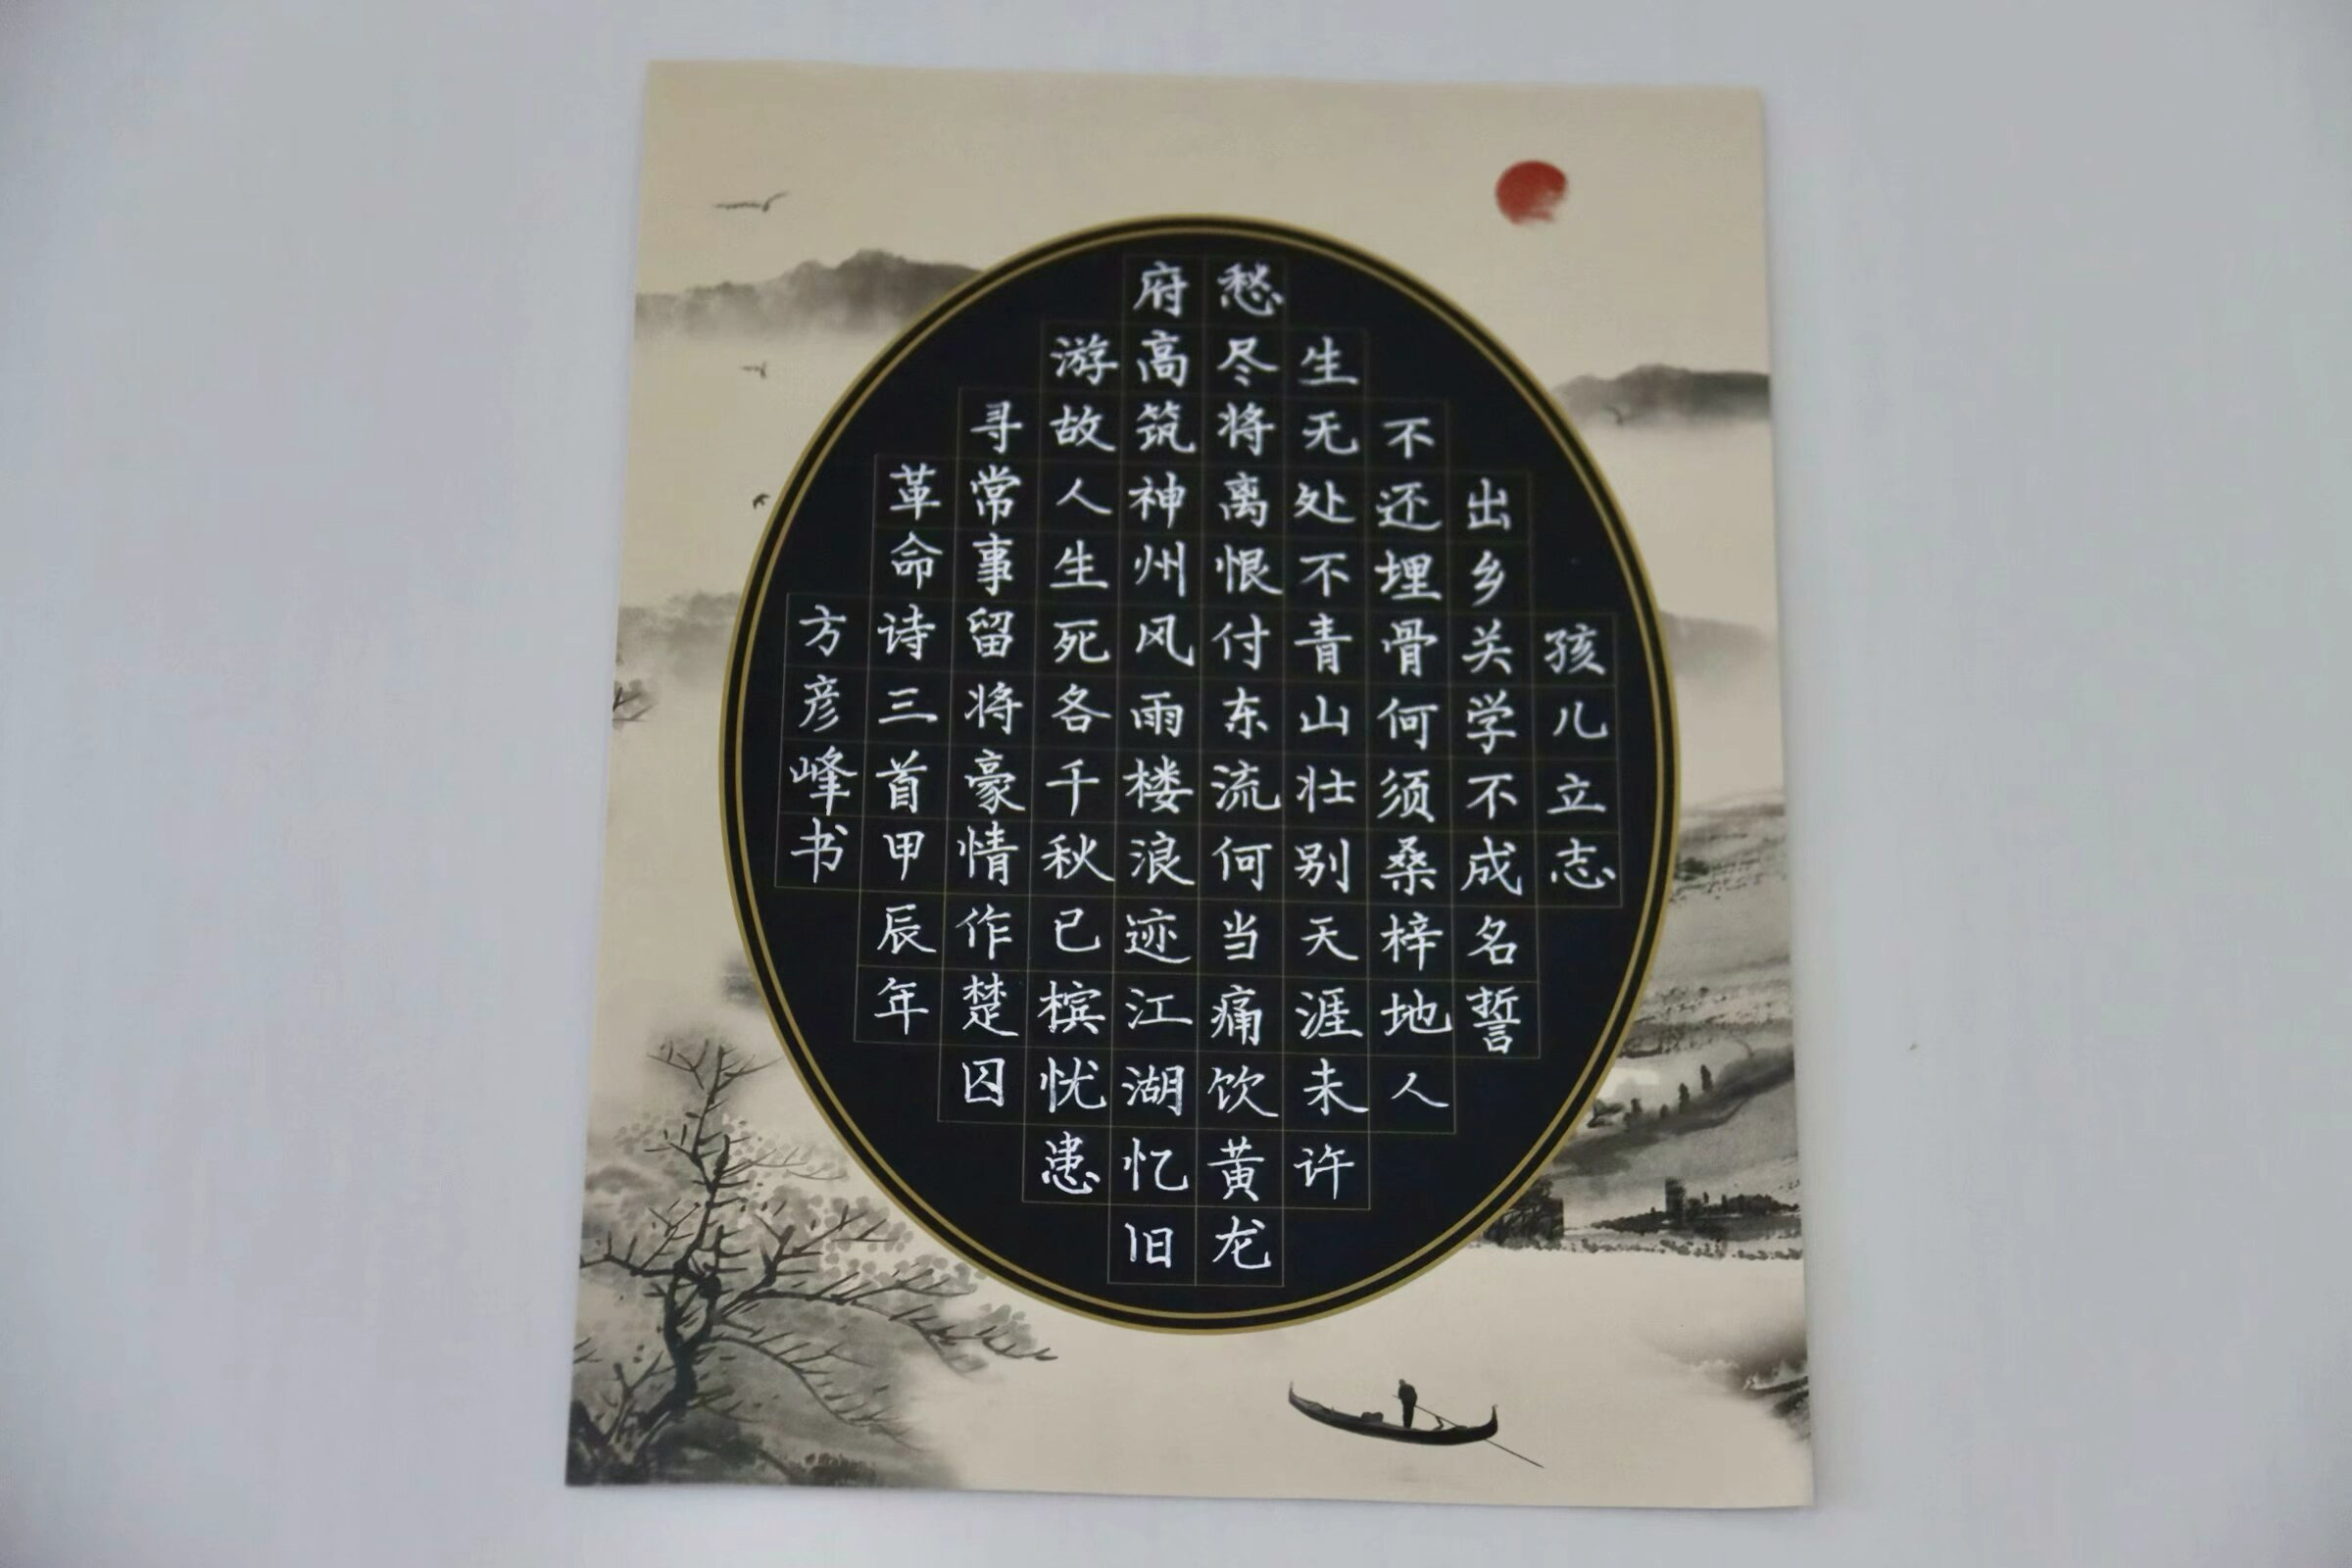 孩儿立志
出乡关学不成名誓
不还埋骨何须桑梓地人
生无处不青山壮别天涯未许
愁尽将离恨付东流何当痛饮黄龙
府高筑神州风雨楼浪迹江湖忆旧
游故人生死各千秋已槟忧患
寻常事留将豪情作楚囚
革命诗三首甲辰年
方彦峰书